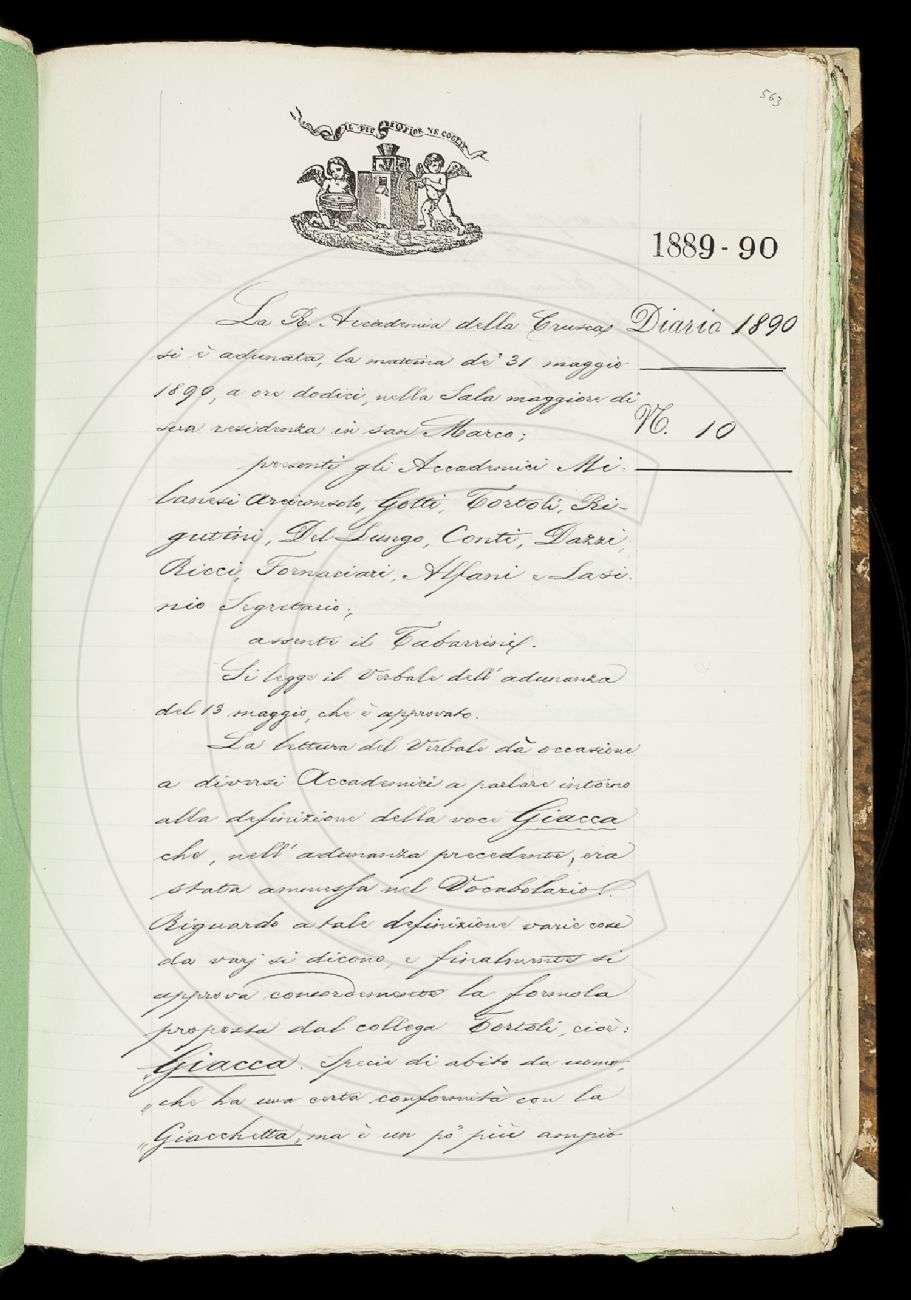 563
IL PIÙ BEL FIOR NE COGLIE
1889-90
Diario 1890
N. 10
La R. Accademia della Crusca
si è adunata, la mattina de' 31 maggio
1890, a ore dodici, nella Sala maggiore di
sua residenza in San Marco;
presenti gli Accademici Mi-
lanesi Arciconsolo, Gotti, Tortoli, Ri-
gutini, Del Lungo, Conti, Dazzi,
Ricci, Fornaciari, Alfani e Lasi-
nio Segretario;
assente il Tabarrini.
Si legge il Verbale dell'adunanza
del 13 maggio, che è approvato.
La lettura del Verbale dà occasione
a diversi Accademici a parlare intorno
alla definizione della voce Giacca
che, nell'adunanza precedente, era
stata ammessa nel Vocabolario.
Riguardo a tale definizione varie cose
da varj si dicono, e finalmente si
approva concordemente la formola
proposta dal collega Tortoli, cioè:
„Giacca. Specie di abito da uomo,
„che ha una certa conformità con la
„Giacchetta, ma è un pò più ampio